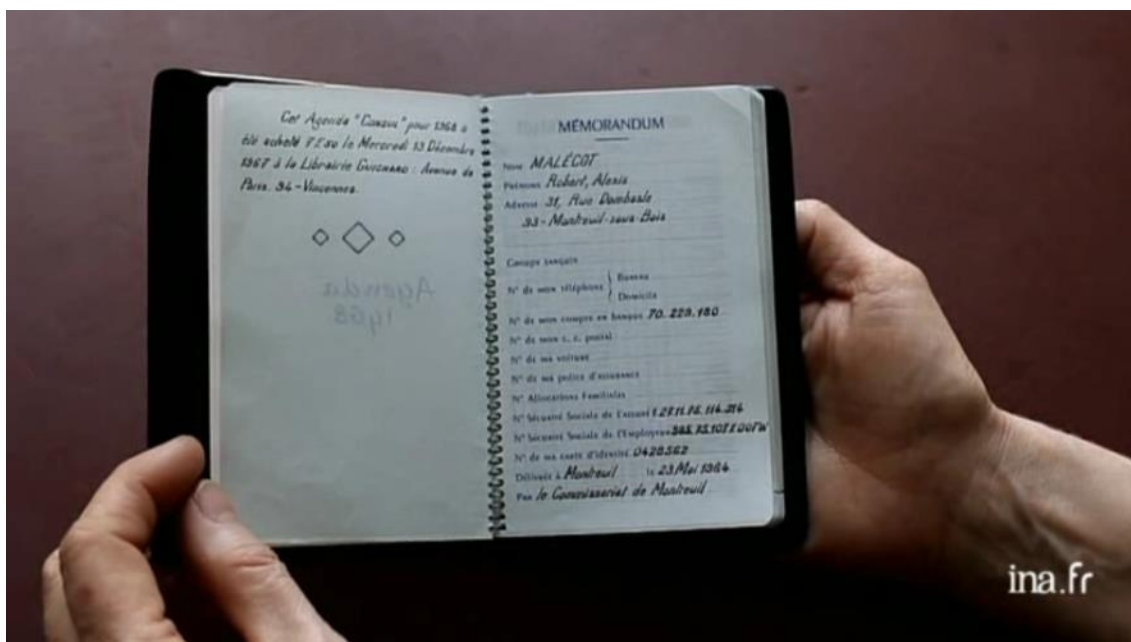 Cet Agenda "Consul" pour 1968 a
été acheté 7F,50 le Mercredi 13 Décembre
1967 à la Librairie GUIGNARD : Avenue de
Paris. 94 - Vincennes.
Agenda
1968
MÉMORANDUM
Nom MALÉCOT
Prénoms Robert, Alexis
Adresse 31, Rue Dombasle
93 - Montreuil-sous-Bois
Groupe sanguin
N° de mon téléphone { Bureau
Domicile
N° de mon compte en banque 70.229.180
N° de mon c. c. postal
N° de ma voiture
N° de ma police d'assurance
N° Allocations Familiales
N° Sécurité Sociale de l'assuré 1.27.11.75.114.214
N° Sécurité Sociale de l'Employeur
N° de ma carte d'identité 0428562
Délivrée à Montreuil le 23 Mai 1964
Par le Commissariat de Montreuil
ina.fr